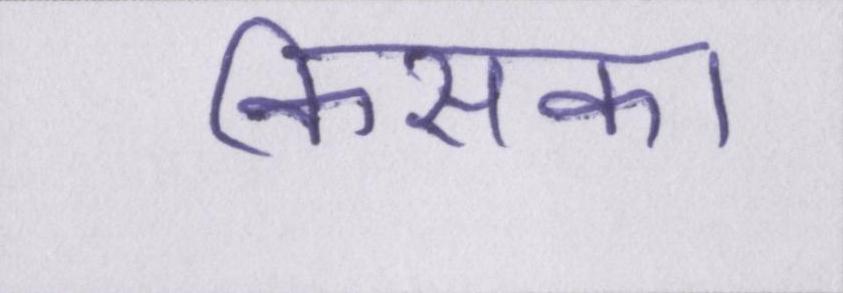 किसका